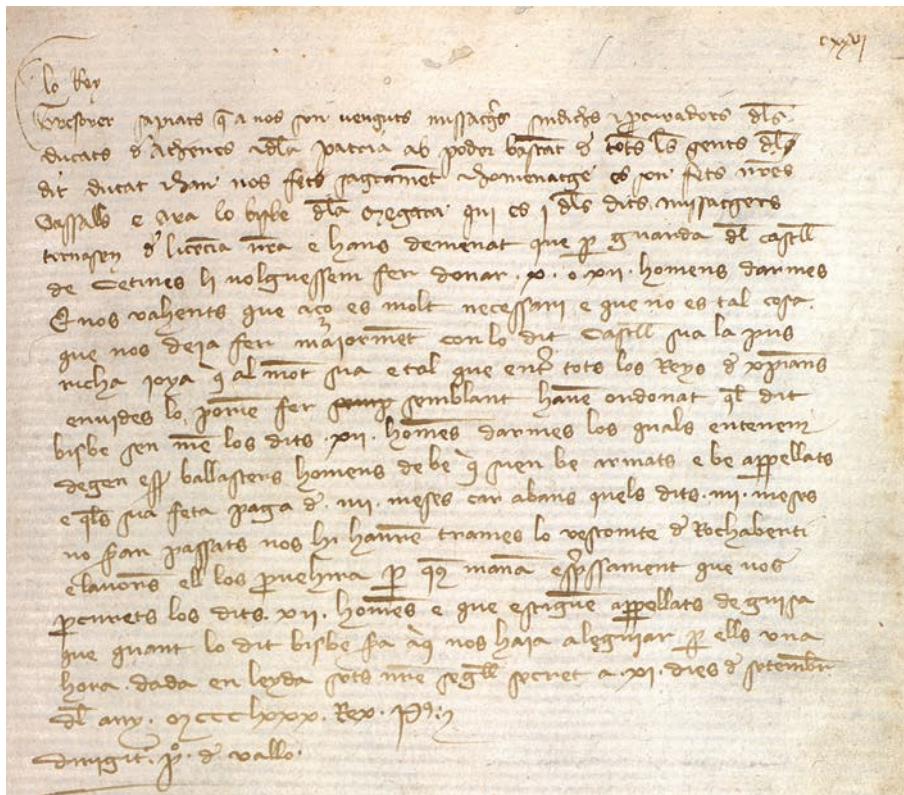 cxxvj
lo Rey
Tresorer sapiats q̄ a nos son venguts missatg̃s sindichs ⁊ ꝓcuradors dl̄s
ducats d̄ Athenes ⁊ dl̄a patria ab poder bastat d̄ tots les gents dl̄
dit ducat ⁊ han nos fets sagramēt ⁊ homenatge es son fets nr̄es
vassalls e ara lo bisbe dl̄a Megara qui es j dl̄s dits missatgers
tornasen d̄ licēcia nr̄a e hans demenat que ꝑ guarda dl̄ castell
de Cetines li volguessem fer donar .x. o .xii. homens darmes
E nos vahents que aço es molt necessari e que no es tal cosa
que nos deia fer maiormēt con lo dit Castell sia la pus
richa joya q̄ al mōt sia e tal que entr̄ tots los Reys d̄ xp̄ians
envides lo poriē fer semblant havē ordonat ql̄ dit
bisbe sen mē los dits .xii. homēs darmes los quals entenem
degen ess̄ ballesters homens de be q̄ sien be armats e be appellats
e ql̄s sia feta paga d̄ .iiii. meses car abans quels dits .iiii. meses
no sien passats nos hi haurē trames lo vescomte d̄ Rochaberti
e lavōrs ell los ꝓvehira ꝑ q̄ us manā exp̄ssament que vos
ꝓcurets los dits .xii. homēs e que estiguē appellats de guisa
que quant lo dit bisbe s̄a aq̄ nos haia a leguiar ꝑ ells una
hora dada en leyda sots nr̄e segell secret a .xi. dies d̄ setembr̄
dl̄ any Mccclxxx Rex P̄
dirigit̄ p̄o d̄ vallo